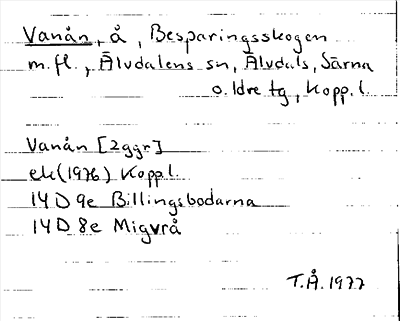 Vanån, å, Besparingsskogen
m.fl., Älvdalens sn, Älvdals, Särna
o. Idre tg, Kopp.l.
Vanån [2ggr]
ek (1976) Kopp.l.
14D 9e Billingsbodarna
14D 8e Migvrå
T.Å. 1977